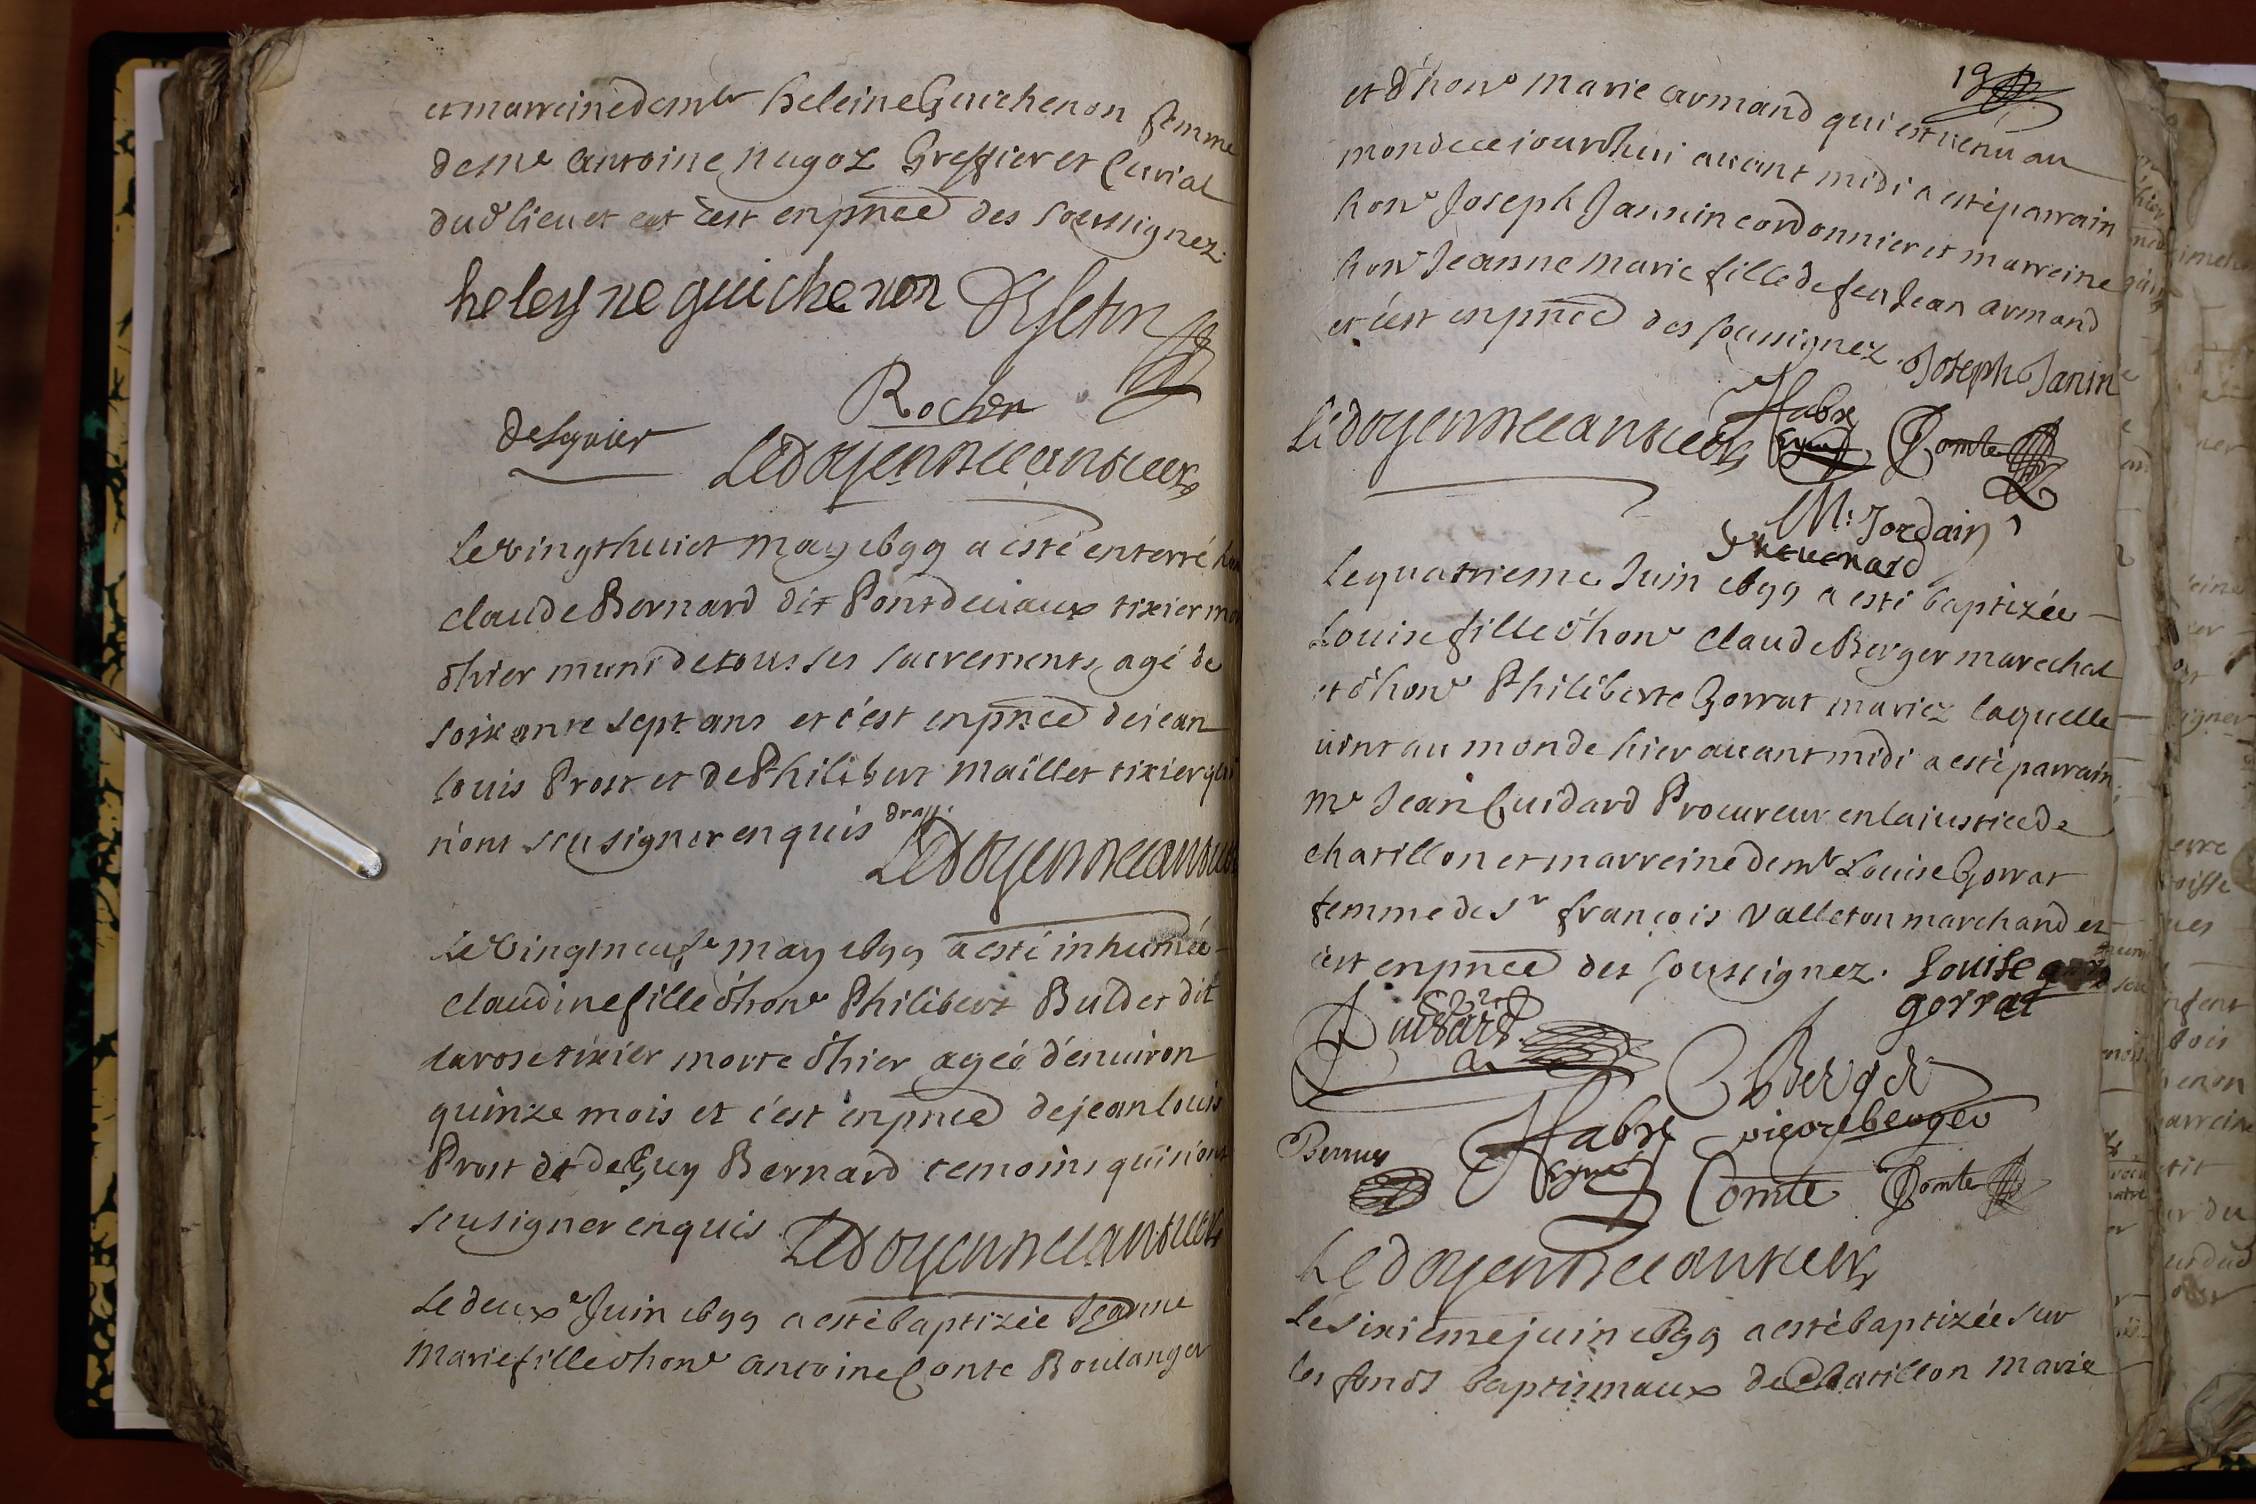 et marreine dem^lle heleine Guichenon femme
de m^e antoine nugoz Greffier et Curial
dud^t lieu et cest enpñce des soussignez
heleyne guichenon
Rocher
desguier Ledoyen
Le vingthuict may 1699 a esté enterré hon
claude Bernard dit Pontdevaux tixier mor
d'hier muni de tous ses sacrements agé de
soixante sept ans et c'est enpñce de jean
louis Prost et de Philibert maillet tixier qui
n'ont sceu signer enquis
Ledoyen
Le vingtneuf^e may 1699 a esté inhumée
claudine fille d'hon^e Philibert Buldet dit
larose tixier morte d'hier ageé d'enuiron
quinze mois et c'est enpñce de jean louis
Prost et de Guy Bernard temoins qui n'ont
sceu signer enquis Ledoyen
Le deux^e Juin 1699 a esté baptizée Jeanne
marie fille d'hon^e antoine Conte Boulanger
19
et d'hon^e marie armand qui est venu au
monde ce jourdhui auant midi a esté parrain
hon^e Joseph Jannin cordonnier et marreine
hon^e Jeanne marie fille de feu Jean armand
et c'est enpñce des soussignez. Joseph Janin
Ledoyen fabry Comte
M: Jordain
Le quatrieme Juin 1699 a esté baptizée
Louise fille d'hon^e claude Berger marechal
et d'hon^e Philiberte Gorrat mariez laquelle
vint au monde hier auant midi a esté parrain
m^e Jean Guidard Procureur en la justice de
chatillon et marreine dem^lle Louise Gorrat
femme de s^r françois Valleton marchand et
c'est enpñce des soussignez. Louise
gorrat
Guidard
Berger
Bernus fabry pierre berger
Comte Comte
Ledoyen
Le sixiéme juin 1699 a esté baptizée sur
les fonds baptismaux de Chatillon marie